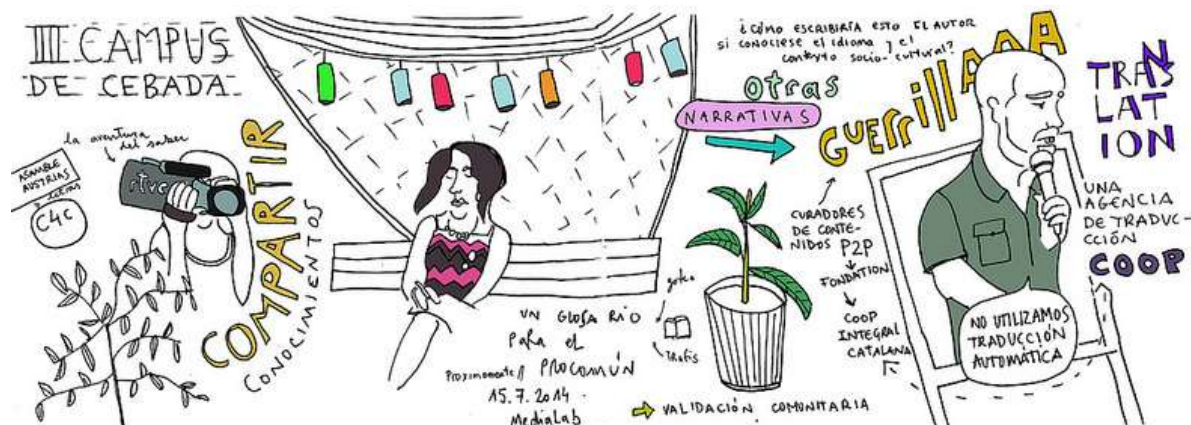 III CAMPUS
DE CEBADA
la aventura
del saber
ASAMBLE
AUSTRIAS
C4C
rtve
COMPARTIR
CONOCIMIENTOS
UN GLOSARIO
PARA el
PROCOMÚN
Proximamente
15.7.2014
MediaLab
trafis
¿CÓMO ESCRIBIRÍA ESTO EL AUTOR
SI CONOCIESE el idioma y el
contexto socio-cultural?
otras
NARRATIVAS
GUERRILLA
TRANS
LAT
ION
CURADORES
DE CONTE-
NIDOS P2P
FONDATION
COOP
INTEGRAL
CATALANA
VALIDACIÓN COMUNITARIA
UNA
AGENCIA
DE TRADUC-
CCIÓN
COOP
NO UTILIZAMOS
TRADUCCIÓN
AUTOMÁTICA